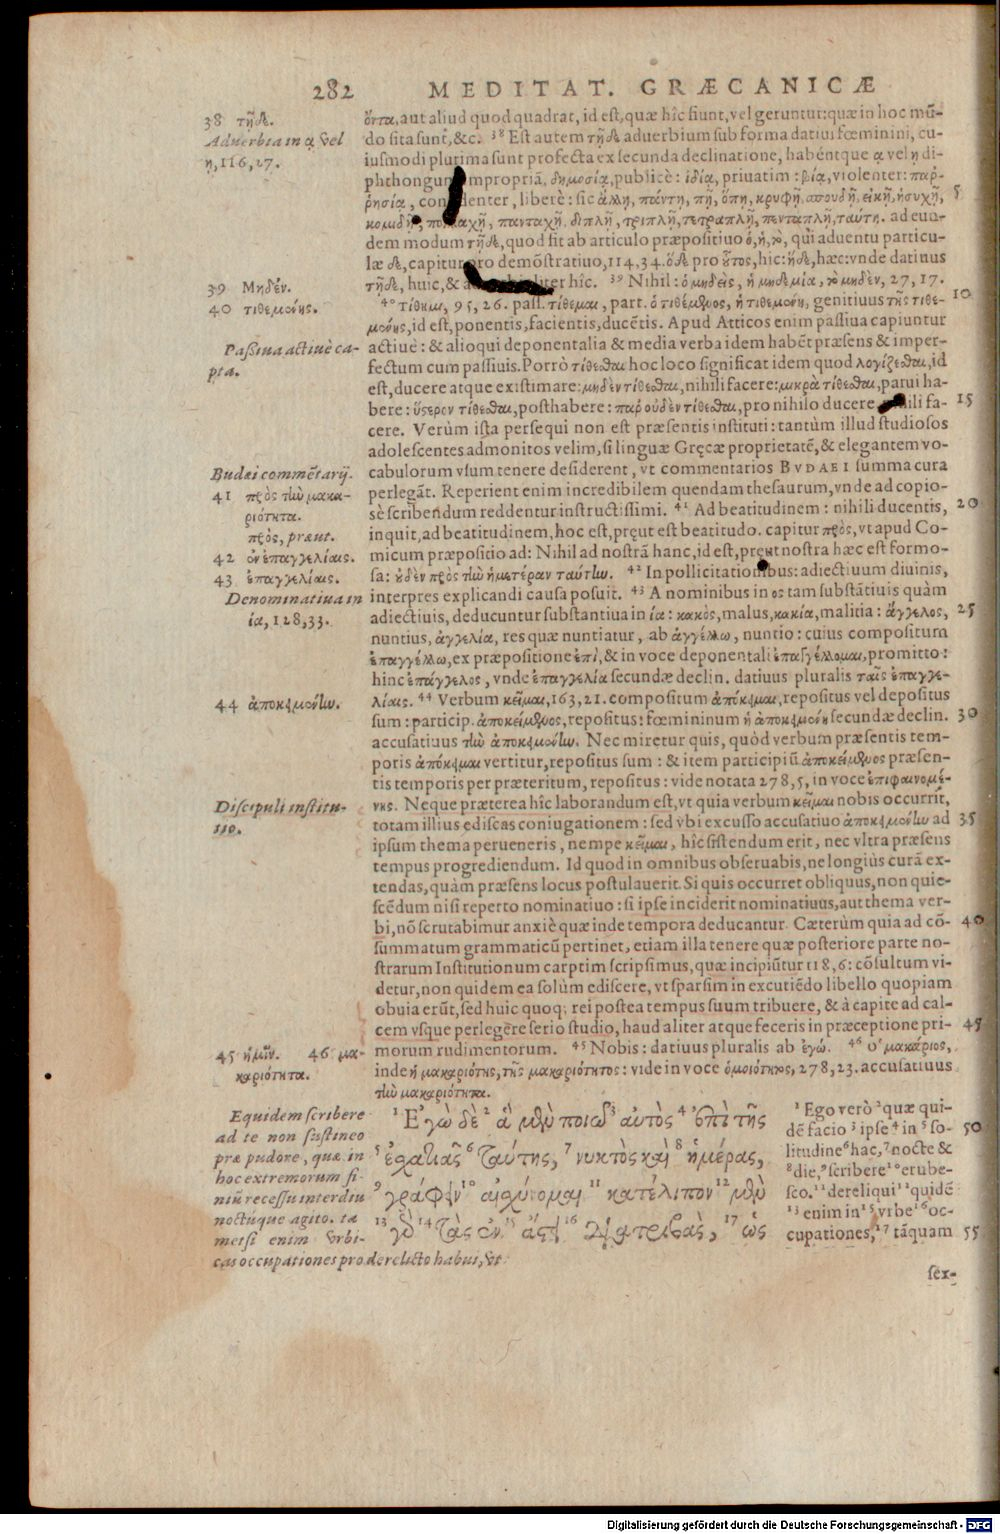 282 MEDITAT. GRÆCANICÆ
38 τῇδε.
Aduerbia in ᾳ vel
ῃ, 116, 27.
39 Μηδέν.
40 τιθεμένης.
Passiua actiuè ca-
pta.
Budæi commētarij.
41 πρὸς τὴν μακα-
ριότητα.
πρὸς, præut.
42 ἐν ἐπαγγελίαις.
43 ἐπαγγελίαις.
Denominatiua in
ία, 128, 33.
44 ἀποκειμένην.
Discipuli institu-
tio.
45 ἡμῖν. 46 μα-
καριότητα.
ὄντα, aut aliud quod quadrat, id est, quæ hîc fiunt, vel geruntur: quæ in hoc mū-
do sita sunt, &c. 38 Est autem τῇδε aduerbium sub forma datiui fœminini, cu-
iusmodi plurima sunt profecta ex secunda declinatione, habéntque ᾳ vel ῃ di-
phthongum impropriā, δημοσίᾳ, publicè: ἰδίᾳ, priuatim: βίᾳ, violenter: παρ-
ρησίᾳ, confidenter, liberè: sic ἄλλῃ, πάντῃ, πῆ, ὅπῃ, κρυφῇ, σπουδῇ, εἰκῇ, ἡσυχῇ, 5
κομιδῇ, πολλαχῇ, πανταχῇ, διπλῇ, τριπλῇ, τετραπλῇ, πενταπλῇ, ταύτῃ. ad eun-
dem modum τῇδε, quod fit ab articulo præpositiuo ὁ, ἡ, τὸ, qui aduentu particu-
læ δε, capitur pro demōstratiuo, 114, 34. ὅδε pro οὗτος, hic: ἥδε, hæc: vnde datiuus
τῇδε, huic, & aduerbialiter hîc. 39 Nihil: ὁ μηδεὶς, ἡ μηδεμία, τὸ μηδὲν, 27, 17.
40 τίθημι, 95, 26. pass. τίθεμαι, part. ὁ τιθέμενος, ἡ τιθεμένη, genitiuus τῆς τιθε- 10
μένης, id est, ponentis, facientis, ducētis. Apud Atticos enim passiua capiuntur
actiuè: & alioqui deponentalia & media verba idem habēt præsens & imper-
fectum cum passiuis. Porrò τίθεσθαι hoc loco significat idem quod λογίζεσθαι, id
est, ducere atque existimare: μηδὲν τίθεσθαι, nihili facere: μικρὰ τίθεσθαι, parui ha-
bere: ὕστερον τίθεσθαι, posthabere: παρ' οὐδὲν τίθεσθαι, pro nihilo ducere nihili fa- 15
cere. Verùm ista persequi non est præsentis instituti: tantùm illud studiosos
adolescentes admonitos velim, si linguæ Gręcæ proprietatē, & elegantem vo-
cabulorum vsum tenere desiderent, vt commentarios BVDAEI summa cura
perlegāt. Reperient enim incredibilem quendam thesaurum, vnde ad copio-
sè scribendum reddentur instructissimi. 41 Ad beatitudinem: nihili ducentis, 20
inquit, ad beatitudinem, hoc est, pręut est beatitudo. capitur πρὸς, vt apud Co-
micum præpositio ad: Nihil ad nostrā hanc, id est, pręut nostra hæc est formo-
sa: οὐδὲν πρὸς τὴν ἡμετέραν ταύτην. 42 In pollicitationibus: adiectiuum diuinis,
interpres explicandi causa posuit. 43 A nominibus in ος tam substātiuis quàm
adiectiuis, deducuntur substantiua in ία: κακὸς, malus, κακία, malitia: ἄγγελος, 25
nuntius, ἀγγελία, res quæ nuntiatur, ab ἀγγέλλω, nuntio: cuius compositum
ἐπαγγέλλω, ex præpositione ἐπὶ, & in voce deponentali ἐπαγγέλλομαι, promitto:
hinc ἐπάγγελος, vnde ἐπαγγελία secundæ declin. datiuus pluralis ταῖς ἐπαγγε-
λίαις. 44 Verbum κεῖμαι, 163, 21. compositum ἀπόκειμαι, repositus vel depositus
sum: particip. ἀποκείμενος, repositus: fœmininum ἡ ἀποκειμένη secundæ declin. 30
accusatiuus τὴν ἀποκειμένην. Nec miretur quis, quòd verbum præsentis tem-
poris ἀπόκειμαι vertitur, repositus sum: & item participiū ἀποκείμενος præsen-
tis temporis per præteritum, repositus: vide notata 278, 5, in voce ἐπιφαινομέ-
νης. Neque præterea hîc laborandum est, vt quia verbum κεῖμαι nobis occurrit,
totam illius ediscas coniugationem: sed vbi excusso accusatiuo ἀποκειμένην ad 35
ipsum thema perueneris, nempe κεῖμαι, hîc sistendum erit, nec vltra præsens
tempus progrediendum. Id quod in omnibus obseruabis, ne longiùs curā ex-
tendas, quàm præsens locus postulauerit. Si quis occurret obliquus, non quie-
scēdum nisi reperto nominatiuo: si ipse inciderit nominatiuus, aut thema ver-
bi, nō scrutabimur anxiè quæ inde tempora deducantur. Cæterùm quia ad cō- 40
summatum grammaticū pertinet, etiam illa tenere quæ posteriore parte no-
strarum Institutionum carptim scripsimus, quæ incipiūtur 118, 6: cōsultum vi-
detur, non quidem ea solùm ediscere, vt sparsim in excutiēdo libello quopiam
obuia erūt, sed huic quoq; rei postea tempus suum tribuere, & à capite ad cal-
cem vsque perlegere serio studio, haud aliter atque feceris in præceptione pri- 45
morum rudimentorum. 45 Nobis: datiuus pluralis ab ἐγώ. 46 Ὁ μακάριος,
inde ἡ μακαριότης, τῆς μακαριότητος: vide in voce ὁμοιότητος, 278, 23. accusatiuus
τὴν μακαριότητα.
Equidem scribere
ad te non sustineo
præ pudore, quæ in
hoc extremorum fi-
niū recessu interdiu
noctúque agito. ta
metsi enim vrbi-
cas occupationes pro derelicto habui, vt
1 Ἐγὼ δὲ 2 ἃ μὲν ποιῶ 3 αὐτὸς 4 ἐπὶ τῆς
5 ἐσχατιᾶς 6 ταύτης, 7 νυκτὸς καὶ 8 ἡμέρας,
9 γράφειν 10 αἰσχύνομαι. 11 κατέλιπον 12 μὲν
13 γὰρ 14 τὰς ἐν 15 ἄστει 16 διατριβὰς, 17 ὡς
1 Ego verò 2 quæ qui-
dē facio 3 ipse 4 in 5 so- 50
litudine 6 hac, 7 nocte &
8 die, 9 scribere 10 erube-
sco. 11 dereliqui 12 quidē
13 enim in 15 vrbe 16 oc-
cupationes, 17 tāquam 55
sex-
Digitalisierung gefördert durch die Deutsche Forschungsgemeinschaft - DFG